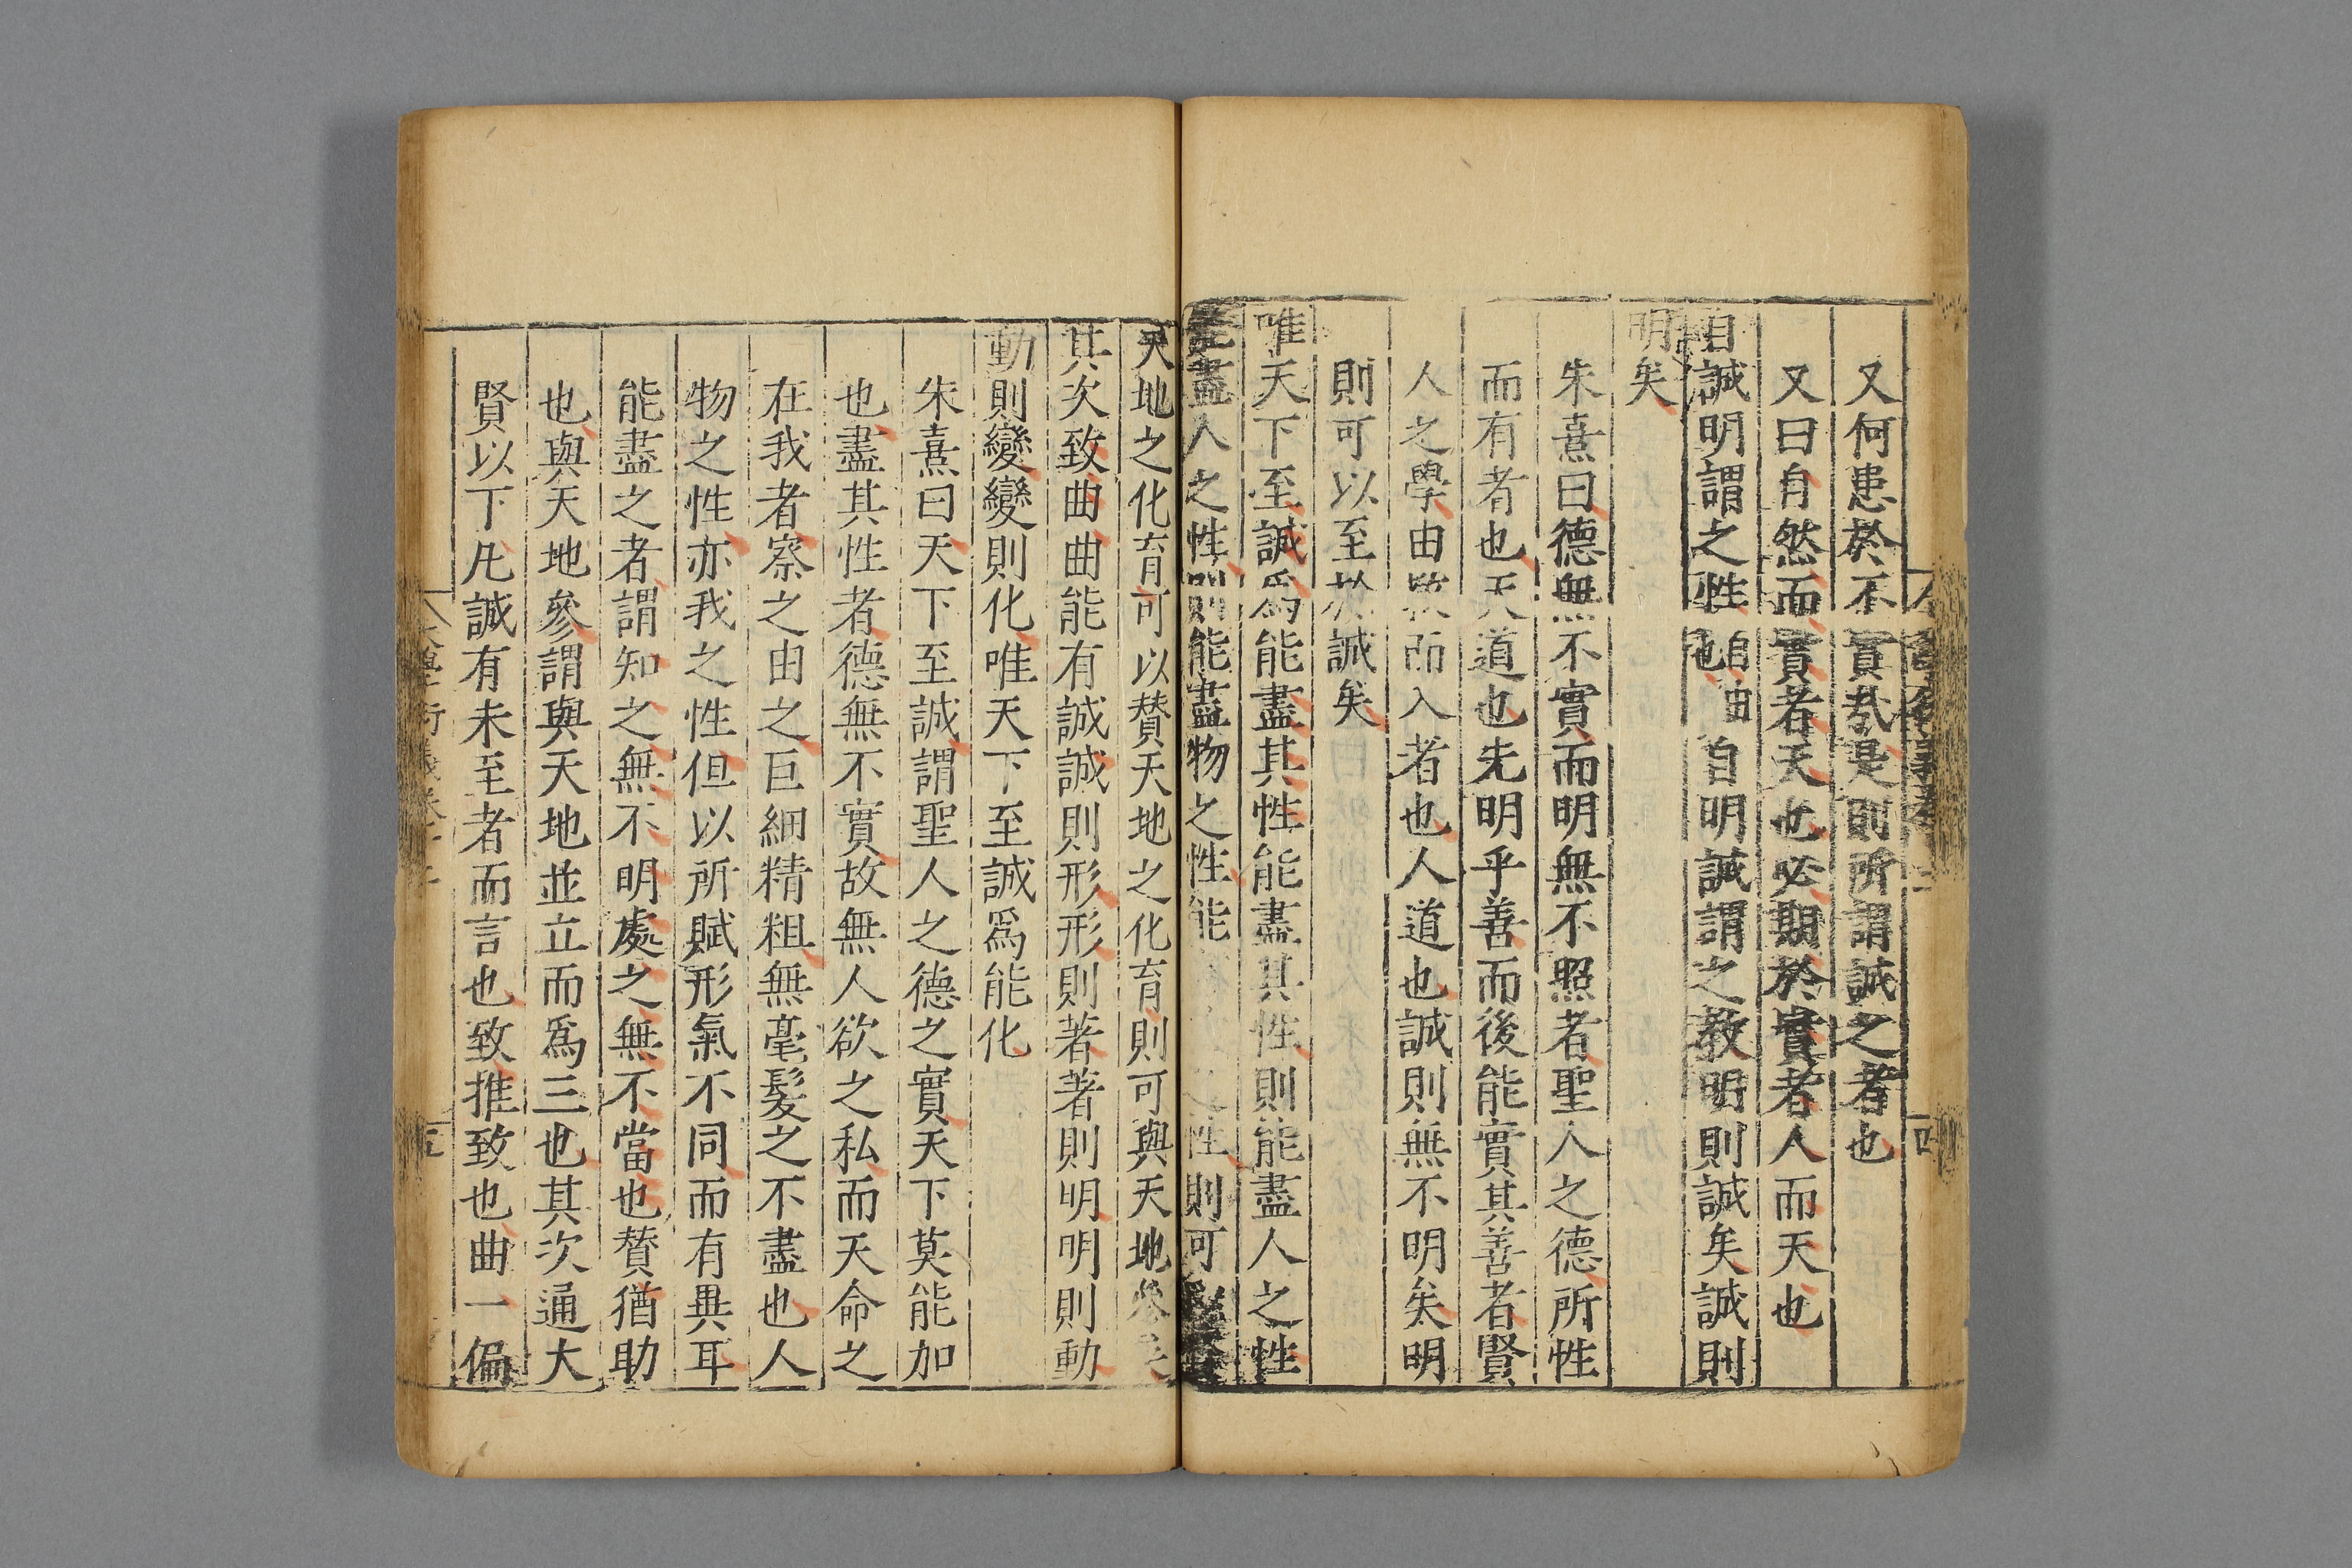 又何患於不實哉是則所謂誠之者也
又曰自然而實者天也必期於實者人而天也
自誠明謂之性自由也自明誠謂之教明則誠矣誠則
明矣
朱熹曰德無不實而明無不照者聖人之德所性
而有者也天道也先明乎善而後能實其善者賢
人之學由敎而入者也人道也誠則無不明矣明
則可以至於誠矣
唯天下至誠爲能盡其性能盡其性則能盡人之性
能盡人之性則能盡物之性能之性則可
天地之化育可以贊天地之化育則可與天地參矣
其次致曲曲能有誠誠則形形則著著則明明則動
動則變變則化唯天下至誠爲能化
朱熹曰天下至誠謂聖人之德之實天下莫能加
也盡其性者德無不實故無人欲之私而天命之
在我者察之由之巨細精粗無毫髮之不盡也人
物之性亦我之性但以所賦形氣不同而有異耳
能盡之者謂知之無不明處之無不當也贊猶助
也與天地參謂與天地並立而爲三也其次通大
賢以下凡誠有未至者而言也致推致也曲一偏